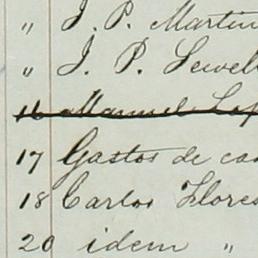 " J. P. Martin
" J. P. Sewell
16 Manuel Lop
17 Gastos de ca
18 Carlos Flores
20 idem "